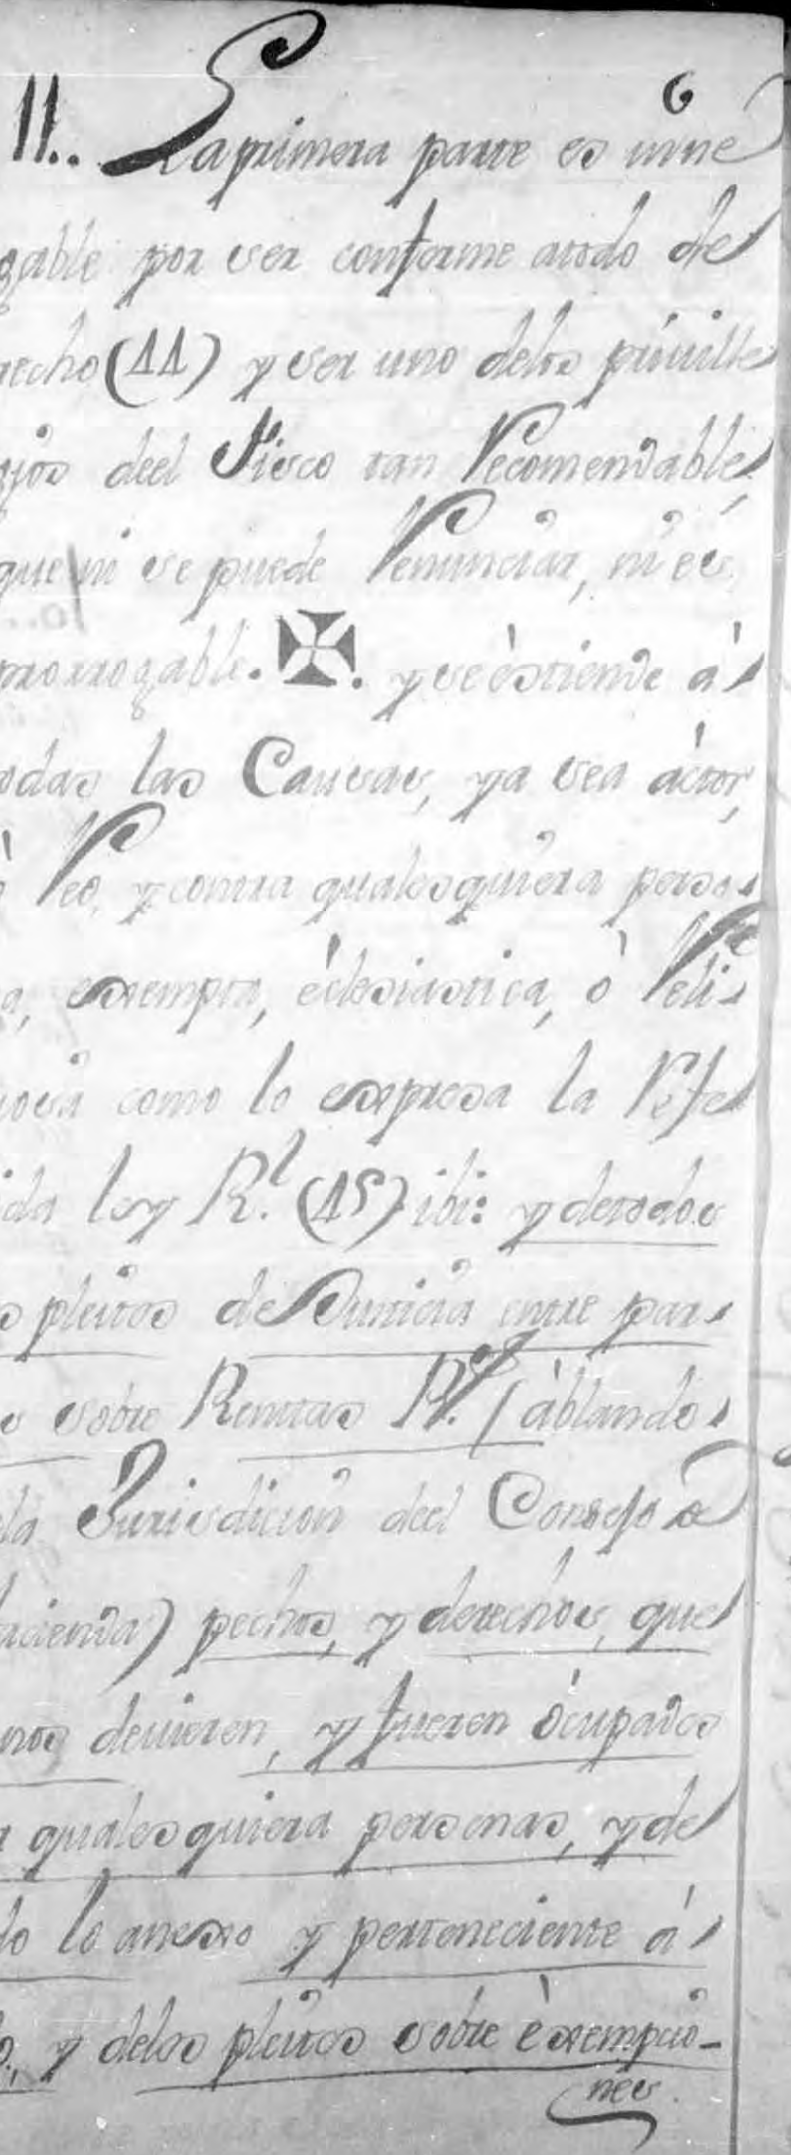 6
11.. La primera parte es inne
gable por ser conforme atodo de
recho (14) y ser uno delos priuille
gios deel Fisco tan Recomendable,
que ni se puede Renunciar, ni es
prorrogable. . y se èstiende á
odas las Causas, ya sea áctor,
ò Reo, y contra qualesquiera perso
a, exempta, éclesiastica, ò Reli
iosa como lo expresa la Refe
ida ley R.l (15) ibi: y detodos
s pleitos de Justicia entre par
s sobre Rentas R.s / áblando
la Jurisdicion deel Consejo de
acienda) pechos, y derechos, que
nos deuieren, y fueren ócupados
r qualesquiera personas, y de
do lo anexo y perteneciente á
o, y delos pleitos sobre èxempcio-
nes.